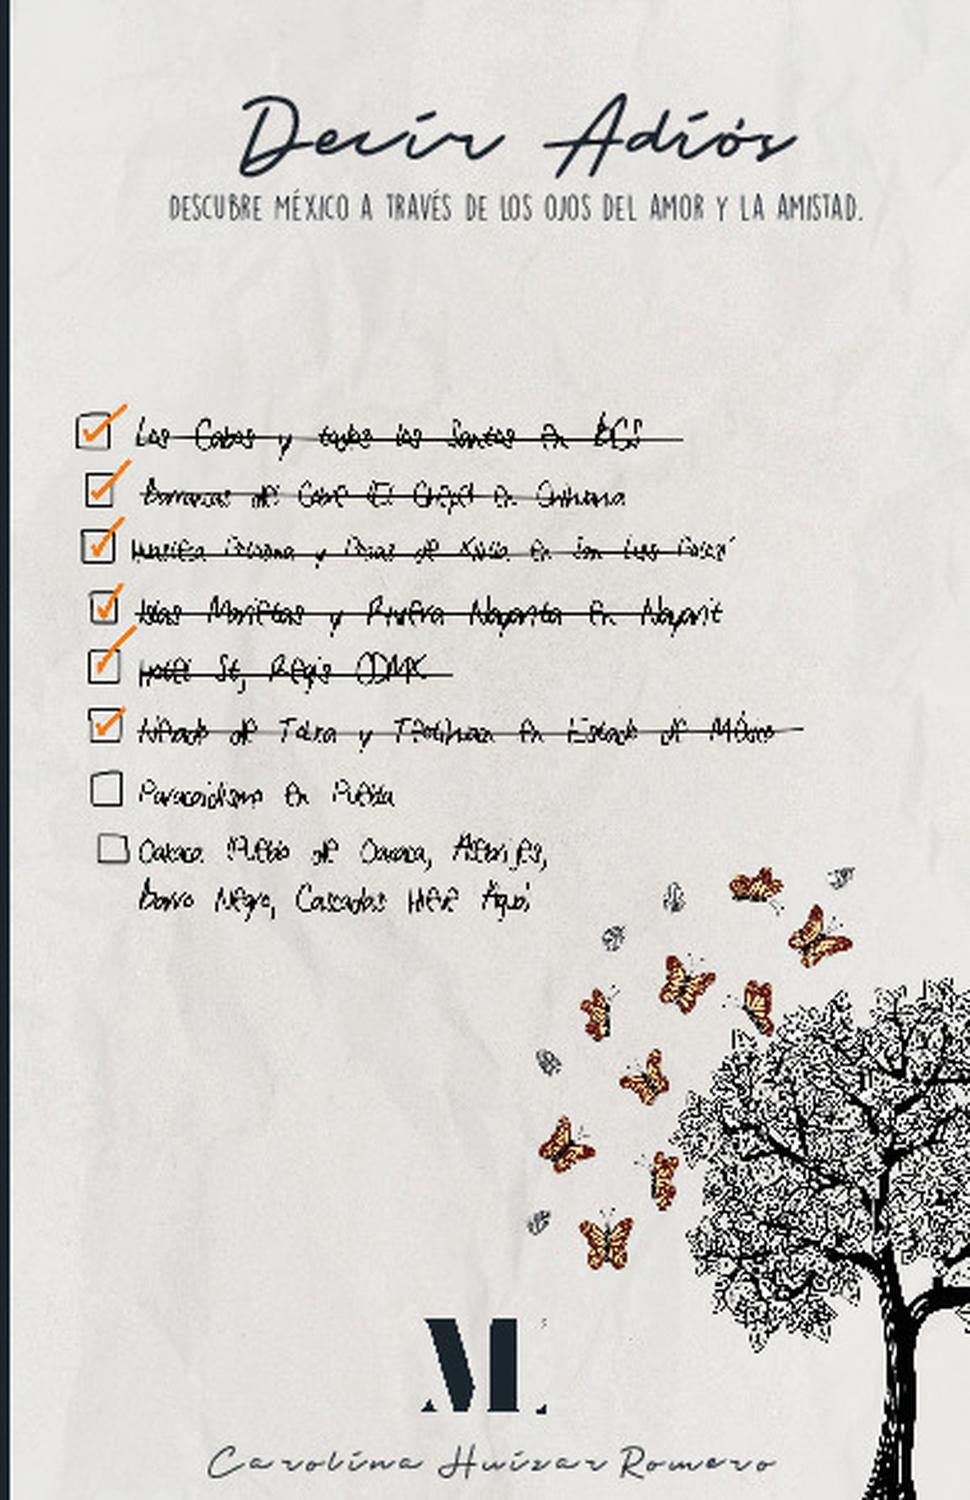 Decir Adiós
DESCUBRE MÉXICO A TRAVÉS DE LOS OJOS DEL AMOR Y LA AMISTAD.
Los Cabos y todos los Santos en BCS
Barrancas del Cobre (El Chepe) en
Huasteca Potosina y Pozas de Xilitla en San Luis Potosí
Islas Marietas y Riviera Nayarita en Nayarit
Hotel St, Regis CDMX
Nevado de Toluca y en Estado de México
Paracaidismo en Puebla
Oaxaca. Pueblo de Oaxaca, Alebrijes,
Barro Negro, Cascadas Hierve Agua
M.
Carolina Huízar Romero